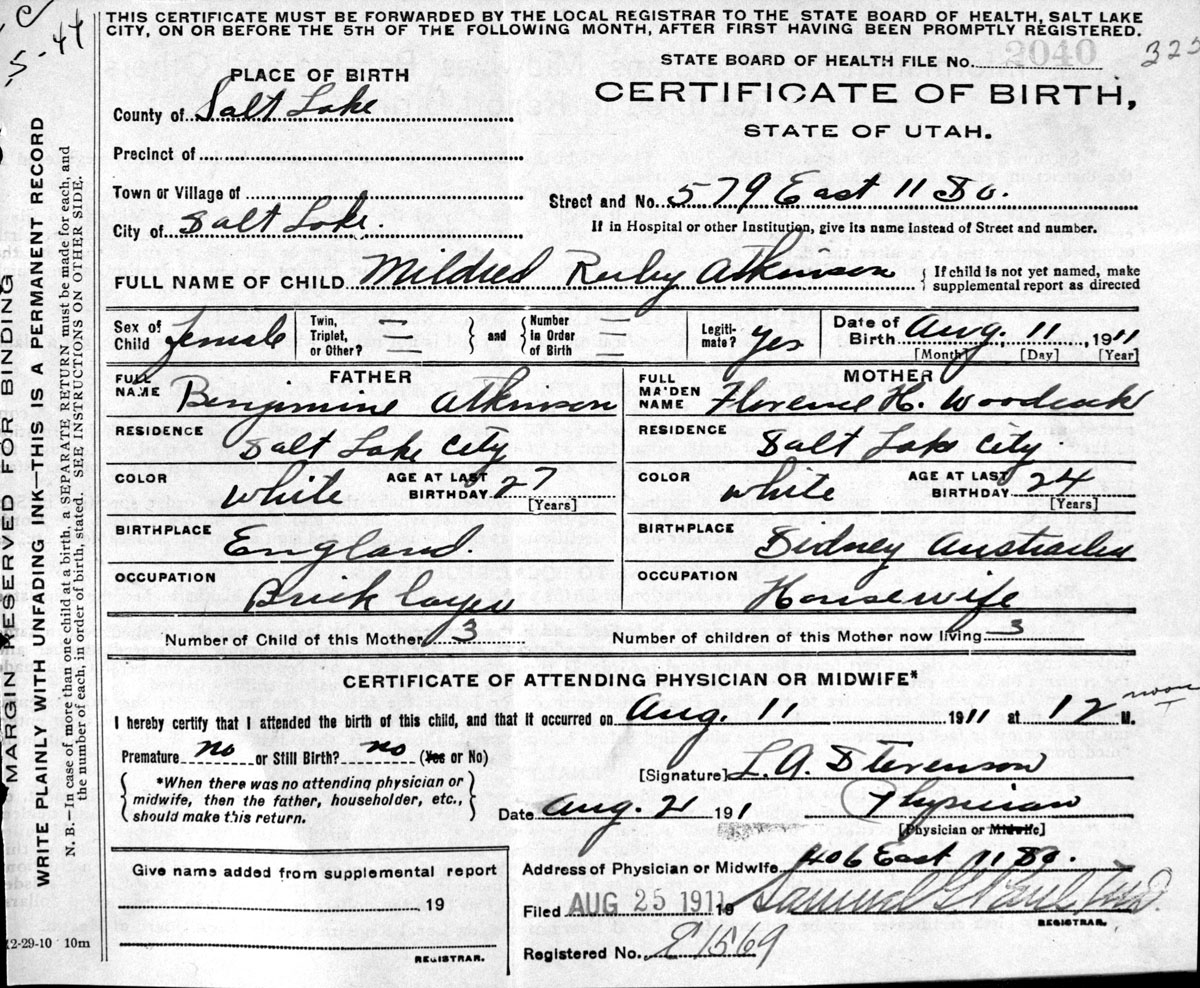 THIS CERTIFICATE MUST BE FORWARDED BY THE LOCAL REGISTRAR TO THE STATE BOARD OF HEALTH, SALT LAKE
CITY, ON OR BEFORE THE 5TH OF THE FOLLOWING MONTH, AFTER FIRST HAVING BEEN PROMPTLY REGISTERED.
STATE BOARD OF HEALTH FILE No. 2040
325
PLACE OF BIRTH
CERTIFICATE OF BIRTH,
STATE OF UTAH.
County of Salt Lake
Precinct of
Town or Village of
Street and No. 579 East 11 So.
City of Salt Lake.
If in Hospital or other Institution, give its name instead of Street and number.
FULL NAME OF CHILD Mildred Ruby Atkinson { If child is not yet named, make supplemental report as directed
Sex of Child female Twin, Triplet, or Other? and Number in Order of Birth Legitimate? yes Date of Birth Aug. 11, 1911
[Month] [Day] [Year]
FATHER
MOTHER
FULL NAME Benjimine Atkinson
FULL MAIDEN NAME Florence H. Woodcock
RESIDENCE Salt Lake City
RESIDENCE Salt Lake City.
COLOR white AGE AT LAST BIRTHDAY 27 [Years]
COLOR white AGE AT LAST BIRTHDAY 24 [Years]
BIRTHPLACE England.
BIRTHPLACE Sidney Australia
OCCUPATION Brick layer
OCCUPATION Housewife
Number of Child of this Mother 3
Number of children of this Mother now living 3
CERTIFICATE OF ATTENDING PHYSICIAN OR MIDWIFE*
I hereby certify that I attended the birth of this child, and that it occurred on Aug. 11 1911 at 12 M. noon
Premature no or Still Birth? no (Yes or No)
*When there was no attending physician or
midwife, then the father, householder, etc.,
should make this return.
[Signature] L. A. Stevenson
Date Aug. 21 191
Physician
[Physician or Midwife]
Address of Physician or Midwife 406 East 11 So.
Give name added from supplemental report
19
REGISTRAR.
Filed AUG 25 1911 19 Samuel G.
REGISTRAR.
Registered No. E1569
MARGIN RESERVED FOR BINDING
WRITE PLAINLY WITH UNFADING INK—THIS IS A PERMANENT RECORD
N. B.—In case of more than one child at a birth, a SEPARATE RETURN must be made for each, and
the number of each, in order of birth, stated. SEE INSTRUCTIONS ON OTHER SIDE.
12-29-10 10m